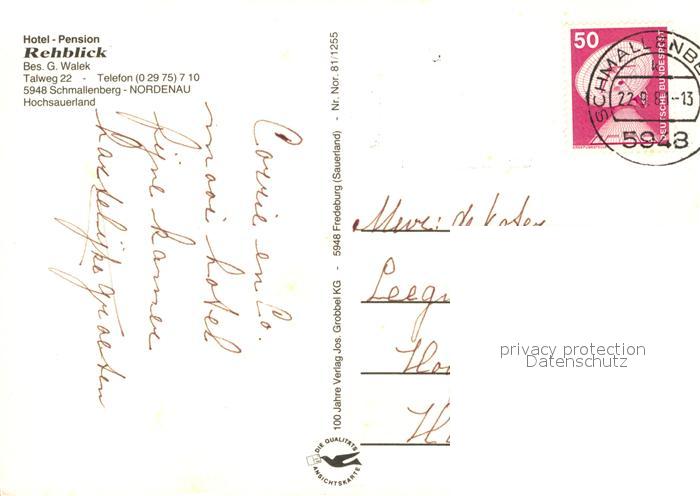 Hotel - Pension
Rehblick
Bes. G. Walek
Talweg 22 - Telefon (0 29 75) 7 10
5948 Schmallenberg - NORDENAU
Hochsauerland
hartelijke groeten
fijne kamer
mooi hotel
Corrie en Co.
100 Jahre Verlag Jos. Grobbel KG - 5948 Fredeburg (Sauerland) - Nr. Nor. 81/1255
DIE QUALITÄTS
ANSICHTSKARTE
50
DEUTSCHE BUNDESPOST
SCHMALLENBE
22.9.8 -13
5948
Mevr. de
Leeg
Ho
H
privacy protection
Datenschutz